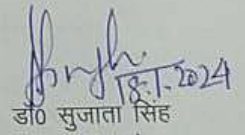 18.1.2024
डॉ0 सुजाता सिंह